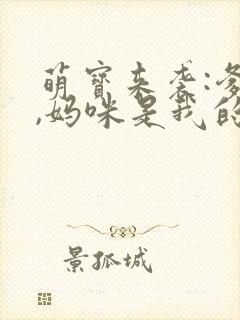 萌宝来袭:爹
,妈咪是我的
景孤城